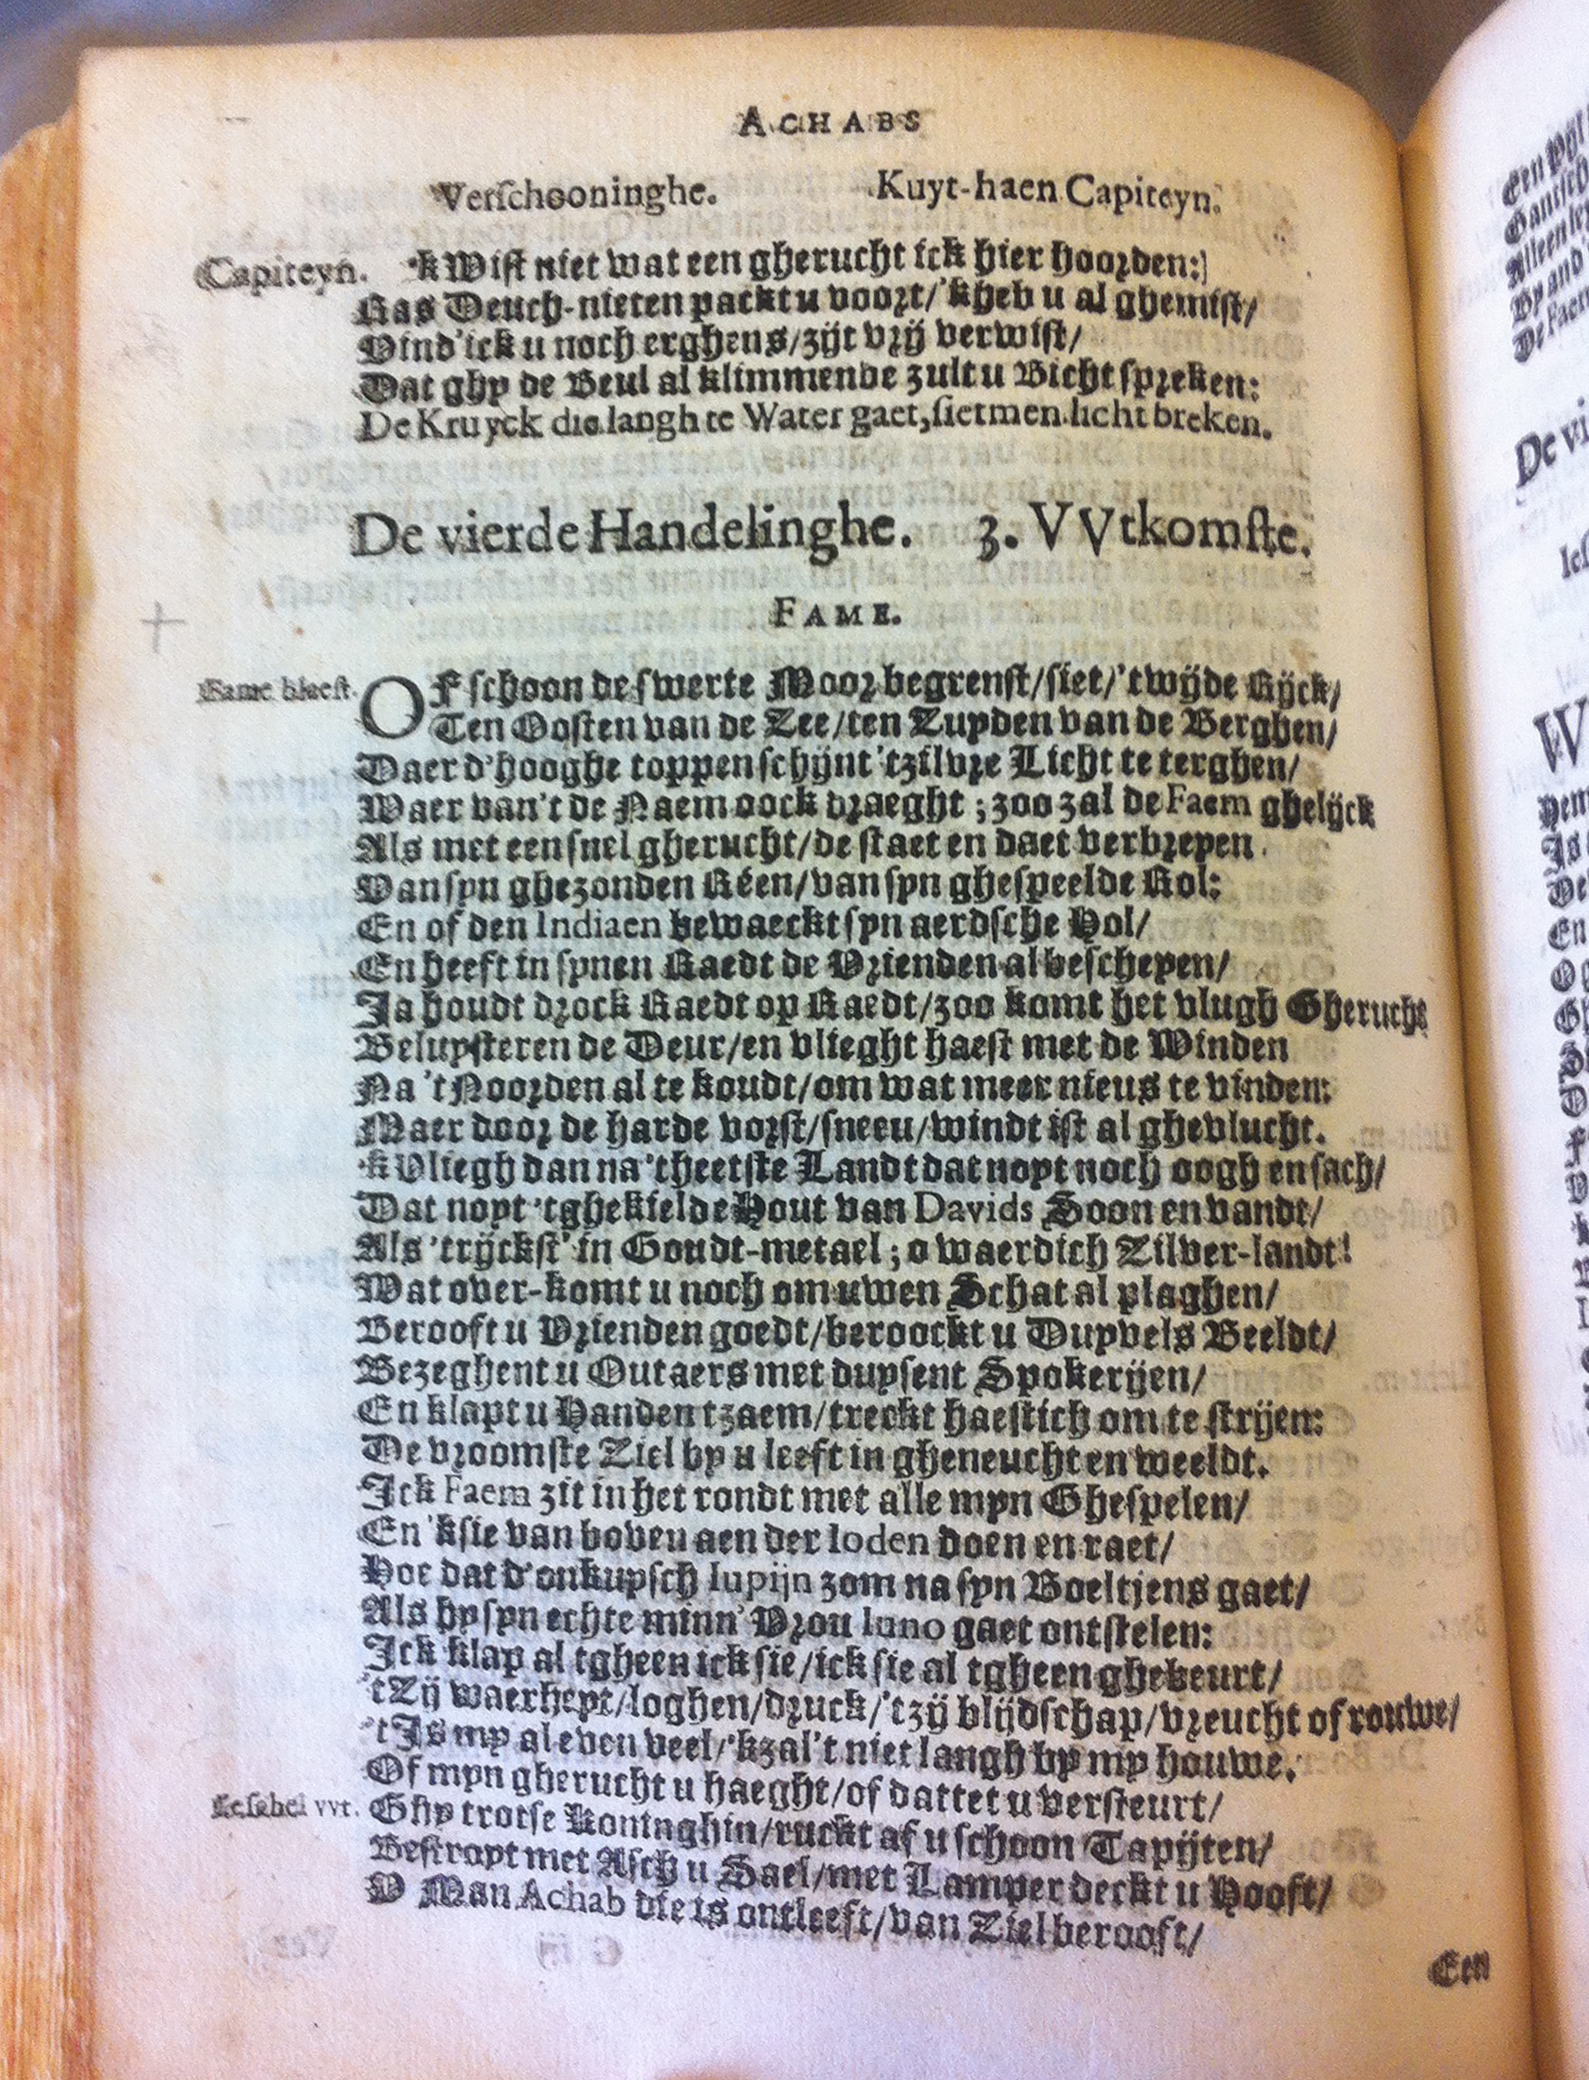 ACHABS
Verschooninghe. Kuyt-haen Capiteyn.
Capiteyn. 'k Wist niet wat een gherucht ick hier hoorden:)
Ras Deuch-nieten packt u voort/'kheb u al ghemist/
Vind'ick u noch erghens/zijt vrij verwist/
Dat ghy de Beul al klimmende zult u Bicht spreken:
De Kruyck die langh te Water gaet, siet men licht breken.
De vierde Handelinghe. 3. VVtkomste.
FAME.
Fame blaest. OF schoon de swerte Moor begrenst/siet/'twijde Rijck/
Ten Oosten van de Zee/ten Zuyden van de Berghen/
Daer d'hooghe toppen schijnt 'tzilvre Licht te terghen/
Waer van't de Naem oock draeght; zoo zal de Faem ghelijck
Als met een snel gherucht/de staet en daet verbreyen
Van syn ghezonden Réen/van syn ghespeelde Rol:
En of den Indiaen bewaeckt syn aerdsche Hol/
En heeft in synen Raedt de Vrienden al bescheyen/
Ja houdt drock Raedt op Raedt/zoo komt het vlugh Gherucht
Beluysteren de Deur/en vlieght haest met de Winden
Na 't Noorden al te koudt/om wat meer nieus te vinden:
Maer door de harde vorst/sneeu/windt ist al ghevlucht.
'k Vliegh dan na 'theetste Landt dat noyt noch oogh en sach/
Dat noyt 'tghekielde Hout van Davids Soon en vandt/
Als 'trijckst' in Goudt-metael; o waerdich Zilver-landt!
Wat over-komt u noch om uwen Schat al plaghen/
Berooft u Vrienden goedt/beroockt u Duyvels Beeldt/
Bezeghent u Outaers met duysent Spokerijen/
En klapt u Handen tzaem/treckt haestich om te strijen:
De vroomste Ziel by u leeft in gheneucht en weeldt.
Ick Faem zit in het rondt met alle myn Ghespelen/
En 'ksie van boven aen der Ioden doen en raet/
Hoe dat d'onkuysch Iupijn zom na syn Boeltjens gaet/
Als hy syn echte minn' Vrou Iuno gaet ontstelen:
Ick klap al tgheen ick sie/ick sie al tgheen ghebeurt/
'tZij waerheyt/loghen/druck/'tzij blijdschap/vreucht of rouwe/
'tIs my al even veel/'kzal't niet langh by my houwe.
Of myn gherucht u haeght/of dattet u versteurt/
Iesabel vvt. Ghy trotse Koninghin/ruckt af u schoon Tapijten/
Bestroyt met Asch u Sael/met Lamper deckt u Hooft/
V Man Achab die is ontleeft/van Ziel berooft/
Een